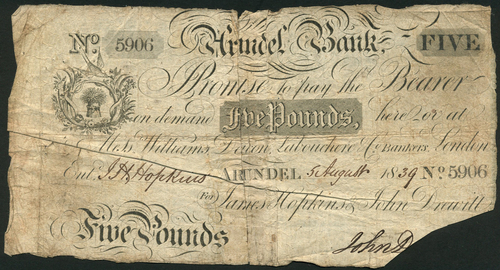 No 5906 Arundel Bank. FIVE
I Promise to pay the Bearer
on demand Five Pounds, here or at
Messrs Williams Deacon, Labouchere & Co Bankers, London
Entd. J H Hopkins ARUNDEL 5 August 1839 No 5906
For James Hopkins & John Drewitt
Five Pounds
John D